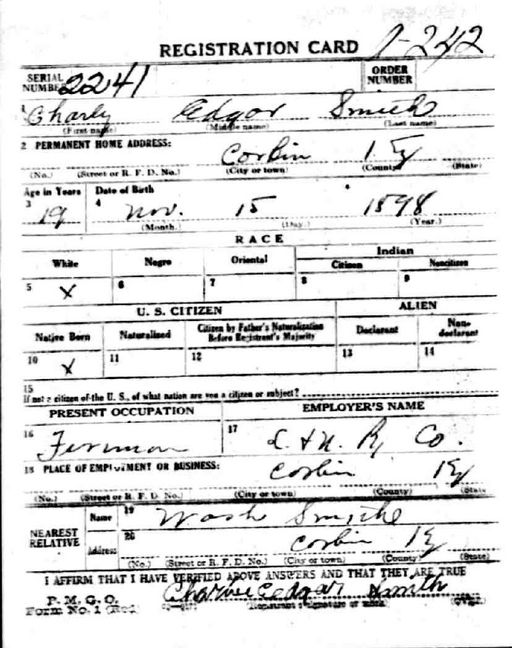 REGISTRATION CARD 1-242
SERIAL NUMBER 2241 ORDER NUMBER
1 Charly Edgar Smith
(First name) (Middle name) (Last name)
2 PERMANENT HOME ADDRESS:
Corbin Ky
(No.) (Street or R. F. D. No.) (City or town) (County) (State)
Age in Years Date of Birth
3 19 4 Nov. 15 1898
(Month.) (Day.) (Year.)
RACE
White Negro Oriental Indian
Citizen Noncitizen
5 X 6 7 8 9
U. S. CITIZEN ALIEN
Native Born Naturalized Citizen by Father's Naturalization Before Registrant's Majority Declarant Non-declarant
10 X 11 12 13 14
15
If not a citizen of the U. S., of what nation are you a citizen or subject?
PRESENT OCCUPATION EMPLOYER'S NAME
16 Fireman 17 L & N. Ry Co.
18 PLACE OF EMPLOYMENT OR BUSINESS:
Corbin Ky
(No.) (Street or R. F. D. No.) (City or town) (County) (State
NEAREST RELATIVE Name 19 Wash Smith
Address 20 Corbin Ky
(No.) (Street or R. F. D. No.) (City or town) (County) (State)
I AFFIRM THAT I HAVE VERIFIED ABOVE ANSWERS AND THAT THEY ARE TRUE
P. M. G. O.
Form No. 1 (Red) Edgar Smith
(Registrant's signature or mark)